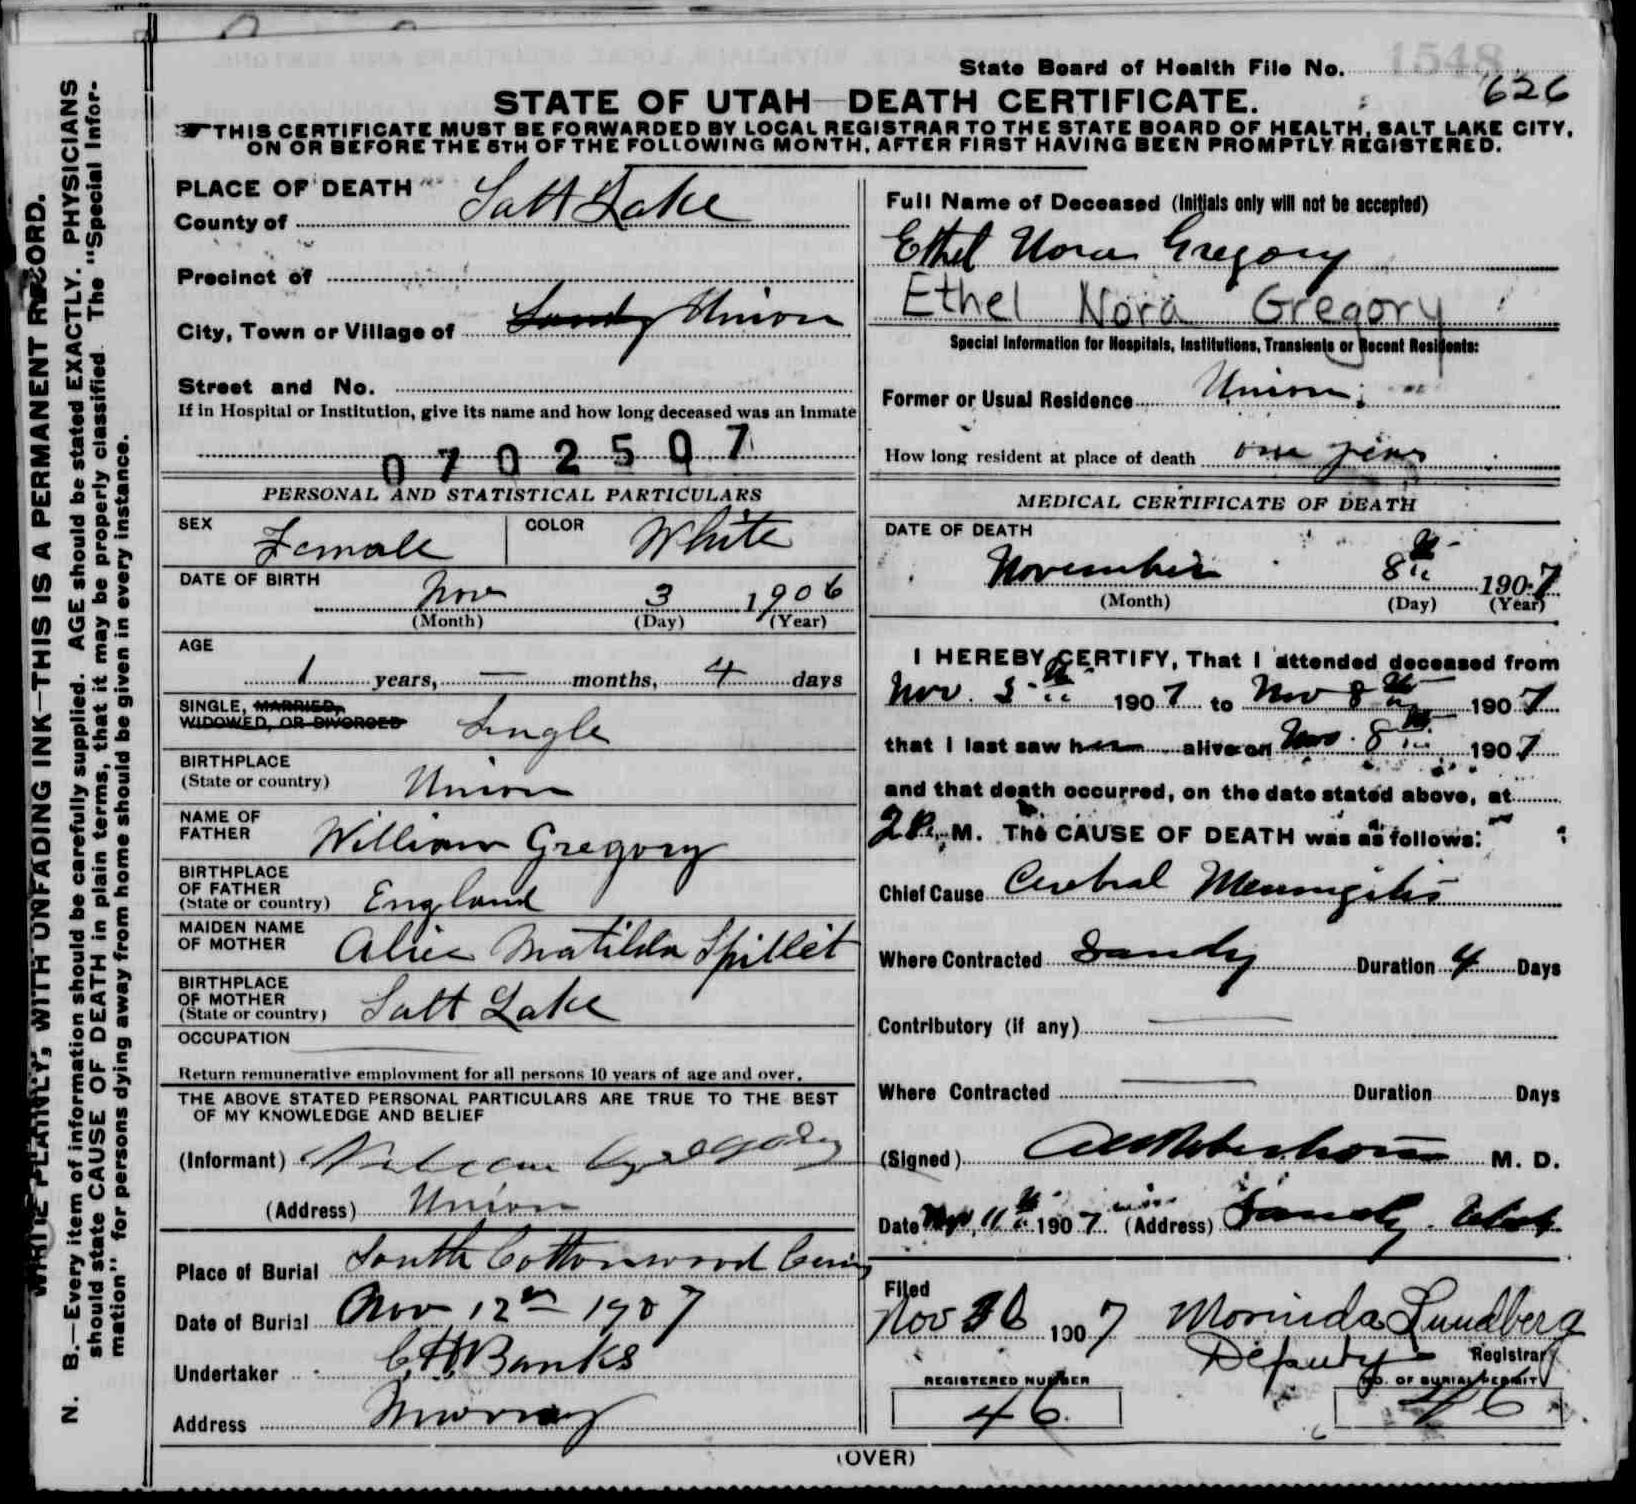 State Board of Health File No. 626
1548
STATE OF UTAH—DEATH CERTIFICATE.
THIS CERTIFICATE MUST BE FORWARDED BY LOCAL REGISTRAR TO THE STATE BOARD OF HEALTH, SALT LAKE CITY,
ON OR BEFORE THE 5TH OF THE FOLLOWING MONTH, AFTER FIRST HAVING BEEN PROMPTLY REGISTERED.
WRITE PLAINLY, WITH UNFADING INK—THIS IS A PERMANENT RECORD.
N. B.—Every item of information should be carefully supplied. AGE should be stated EXACTLY. PHYSICIANS
should state CAUSE OF DEATH in plain terms, that it may be properly classified. The "Special Infor-
mation" for persons dying away from home should be given in every instance.
PLACE OF DEATH
County of Salt Lake
Precinct of
City, Town or Village of Sandy Union
Street and No.
If in Hospital or Institution, give its name and how long deceased was an inmate
0702507
PERSONAL AND STATISTICAL PARTICULARS
SEX Female COLOR White
DATE OF BIRTH Nov 3 1906
(Month) (Day) (Year)
AGE
1 years, — months, 4 days
SINGLE, MARRIED,
WIDOWED, OR DIVORCED Single
BIRTHPLACE
(State or country) Union
NAME OF
FATHER William Gregory
BIRTHPLACE
OF FATHER
(State or country) England
MAIDEN NAME
OF MOTHER Alice Matilda Spillet
BIRTHPLACE
OF MOTHER
(State or country) Salt Lake
OCCUPATION
Return remunerative employment for all persons 10 years of age and over.
THE ABOVE STATED PERSONAL PARTICULARS ARE TRUE TO THE BEST
OF MY KNOWLEDGE AND BELIEF
(Informant) Gregory
(Address) Union
Place of Burial South Cottonwood
Date of Burial Nov 12th 1907
Undertaker C H Banks
Address Murray
Full Name of Deceased (Initials only will not be accepted)
Ethel Nora Gregory
Ethel Nora Gregory
Special Information for Hospitals, Institutions, Transients or Recent Residents:
Former or Usual Residence Union
How long resident at place of death one year
MEDICAL CERTIFICATE OF DEATH
DATE OF DEATH
November 8th 1907
(Month) (Day) (Year)
I HEREBY CERTIFY, That I attended deceased from
Nov. 5th 1907 to Nov 8th 1907
that I last saw her alive on Nov. 8th 1907
and that death occurred, on the date stated above, at
2 P. M. The CAUSE OF DEATH was as follows:
Chief Cause Cerebral Meningitis
Where Contracted Sandy Duration 4 Days
Contributory (if any) —
Where Contracted — Duration Days
(Signed) M. D.
Date Nov, 11th 1907 (Address) Sandy. Utah
Filed
Nov 1907 Morinda Lundberg
Deputy Registrar
REGISTERED NUMBER NO. OF BURIAL PERMIT
46. 46
(OVER)